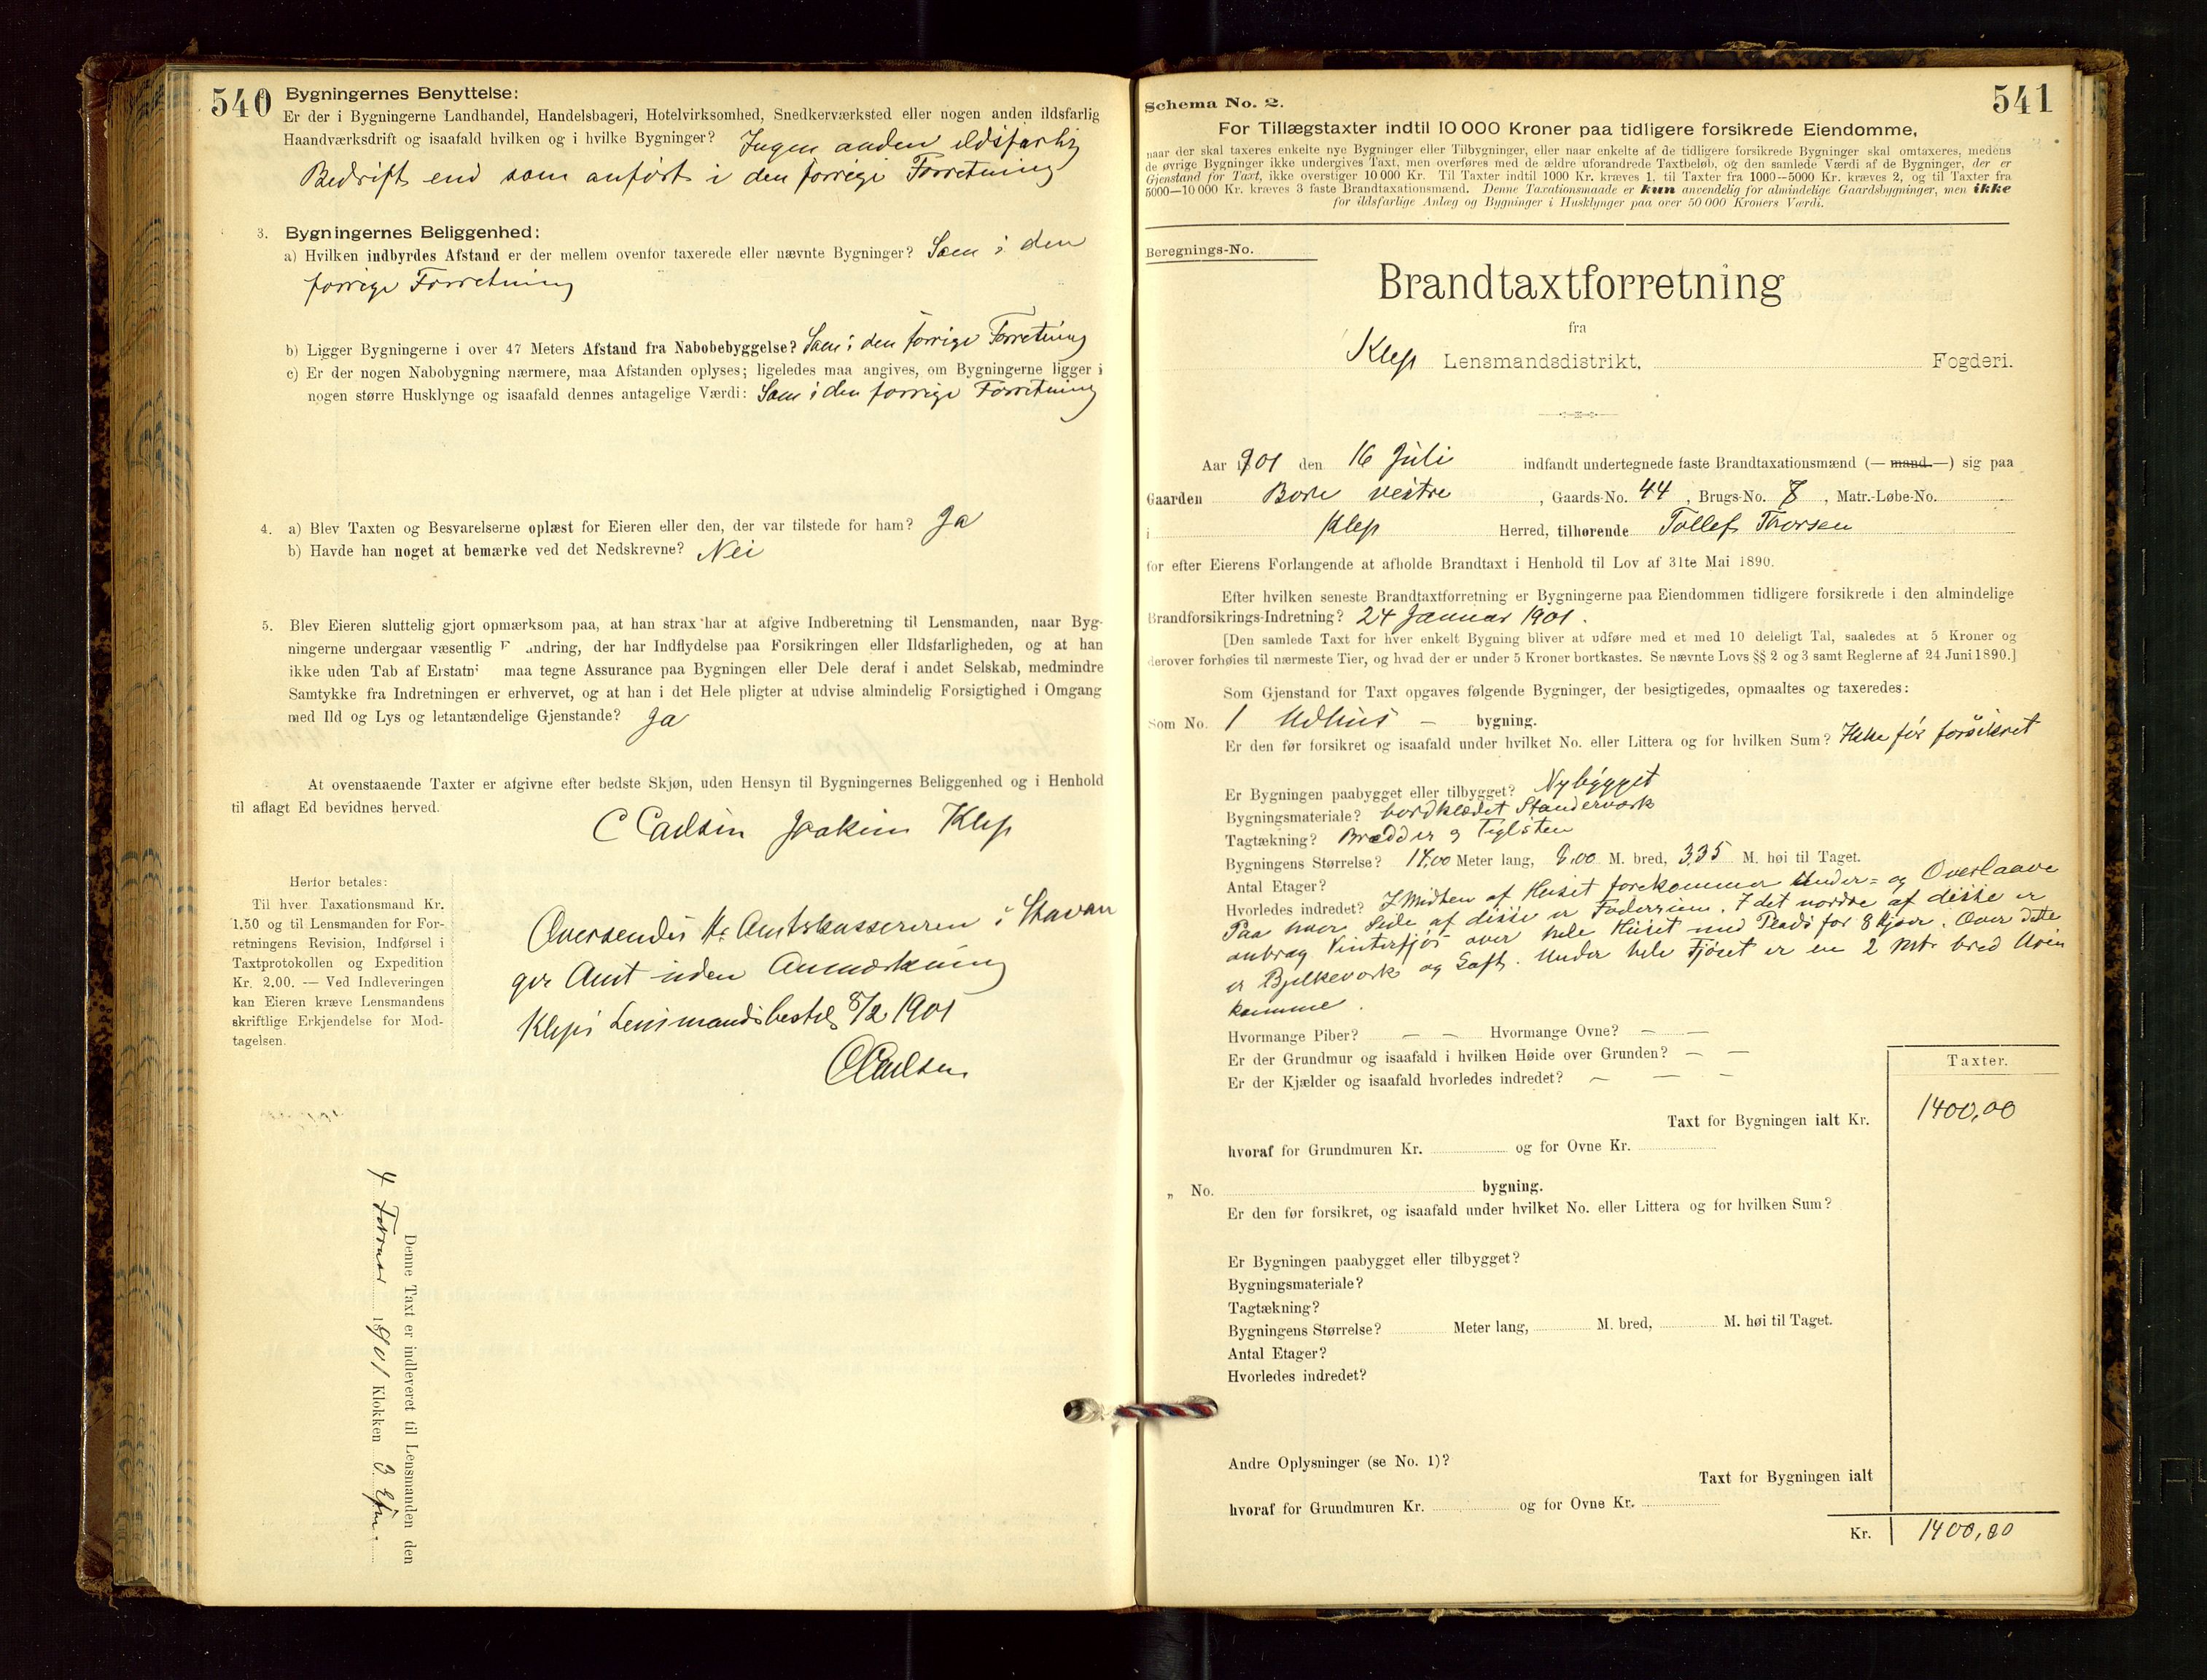 540 Bygningernes Benyttelse:
Er der i Bygningerne Landhandel, Handelsbageri, Hotelvirksomhed, Snedkerværksted eller nogen anden ildsfarlig
Haandværksdrift og isaafald hvilken og i hvilke Bygninger? Ingen anden ildsfarlig
Bedrift end som anført i den forrige Forretning
3. Bygningernes Beliggenhed:
a) Hvilken indbyrdes Afstand er der mellem ovenfor taxerede eller nævnte Bygninger? Som i den
forrige Forretning
b) Ligger Bygningerne i over 47 Meters Afstand fra Nabobebyggelse? Som i den forrige Forretning
c) Er der nogen Nabobygning nærmere, maa Afstanden oplyses; ligeledes maa angives, om Bygningerne ligger i
nogen større Husklynge og isaafald dennes antagelige Værdi: Som i den forrige Forretning
4. a) Blev Taxten og Besvarelserne oplæst for Eieren eller den, der var tilstede for ham? Ja
b) Havde han noget at bemærke ved det Nedskrevne? Nei
5. Blev Eieren sluttelig gjort opmærksom paa, at han strax har at afgive Indberetning til Lensmanden, naar Byg-
ningerne undergaar væsentlig F andring, der har Indflydelse paa Forsikringen eller Ildsfarligheden, og at han
ikke uden Tab af Erstatn maa tegne Assurance paa Bygningen eller Dele deraf i andet Selskab, medmindre
Samtykke fra Indretningen er erhvervet, og at han i det Hele pligter at udvise almindelig Forsigtighed i Omgang
med Ild og Lys og letantændelige Gjenstande? Ja
At ovenstaaende Taxter er afgivne efter bedste Skjøn, uden Hensyn til Bygningernes Beliggenhed og i Henhold
til aflagt Ed bevidnes herved.
C Carlsen Joakim Klep
Herfor betales:
Til hver Taxationsmand Kr.
1.50 og til Lensmanden for For-
retningens Revision, Indførsel i
Taxtprotokollen og Expedition
Kr. 2.00. — Ved Indleveringen
kan Eieren kræve Lensmandens
skriftlige Erkjendelse for Mod-
tagelsen.
Oversendes Hr Amtskassereren i Stavan
ger Amt uden Anmærkning
Kleps Lensmandsbestil 8/2 1901
C Carlsen
Denne Taxt er indleveret til Lensmanden den
4 Februar 1901 Klokken 3 Efm.
541
Schema No. 2.
For Tillægstaxter indtil 10 000 Kroner paa tidligere forsikrede Eiendomme,
naar der skal taxeres enkelte nye Bygninger eller Tilbygninger, eller naar enkelte af de tidligere forsikrede Bygninger skal omtaxeres, medens
de øvrige Bygninger ikke undergives Taxt, men overføres med de ældre uforandrede Taxtbeløb, og den samlede Værdi af de Bygninger, der er
Gjenstand for Taxt, ikke overstiger 10 000 Kr. Til Taxter indtil 1000 Kr. kræves 1, til Taxter fra 1000—5000 Kr. kræves 2, og til Taxter fra
5000—10 000 Kr. kræves 3 faste Brandtaxationsmænd. Denne Taxationsmaade er kun anvendelig for almindelige Gaardsbygninger, men ikke
for ildsfarlige Anlæg og Bygninger i Husklynger paa over 50 000 Kroners Værdi.
Beregnings-No.
Brandtaxtforretning
fra
Klep Lensmandsdistrikt, Fogderi.
Aar 1901 den 16 Juli indfandt undertegnede faste Brandtaxationsmænd (— mand —) sig paa
Gaarden Bore vestre, Gaards-No. 44, Brugs-No. 8, Matr.-Løbe-No.
i Klep Herred, tilhørende Tollef Thorsen
for efter Eierens Forlangende at afholde Brandtaxt i Henhold til Lov af 31te Mai 1890.
Efter hvilken seneste Brandtaxtforretning er Bygningerne paa Eiendommen tidligere forsikrede i den almindelige
Brandforsikrings-Indretning? 24 Januar 1901.
[Den samlede Taxt for hver enkelt Bygning bliver at udføre med et med 10 deleligt Tal, saaledes at 5 Kroner og
derover forhøies til nærmeste Tier, og hvad der er under 5 Kroner bortkastes. Se nævnte Lovs §§ 2 og 3 samt Reglerne af 24 Juni 1890.]
Som Gjenstand for Taxt opgaves følgende Bygninger, der besigtigedes, opmaaltes og taxeredes:
Som No. 1 Udhus — bygning.
Er den før forsikret og isaafald under hvilket No. eller Littera og for hvilken Sum? Ikke før forsikret
Er Bygningen paabygget eller tilbygget? Nybygget
Bygningsmateriale? bordklædet Standerværk
Tagtækning? Brædder og Teglsten
Bygningens Størrelse? 17,00 Meter lang, 8,00 M. bred, 3,35 M. høi til Taget.
Antal Etager?
Hvorledes indredet? I Midten af Huset forekommer Under= og Overlaave
Paa hver Side af disse er Foderrum. I det nordre af disse er
anbrag Vinterfjøs over hele Huset med Plads for 8 Kjøer. Over dette
er Bjelkeværk og Loft. Under hele Fjøset er en 2 Mtr bred Urin
kamme.
Hvormange Piber? — — Hvormange Ovne? — —
Er der Grundmur og isaafald i hvilken Høide over Grunden? — —
Er der Kjælder og isaafald hvorledes indredet? — — —
Taxter.
Taxt for Bygningen ialt Kr. 1400,00
hvoraf for Grundmuren Kr. og for Ovne Kr.
„ No. bygning.
Er den før forsikret, og isaafald under hvilket No. eller Littera og for hvilken Sum?
Er Bygningen paabygget eller tilbygget?
Bygningsmateriale?
Tagtækning?
Bygningens Størrelse? Meter lang, M. bred, M. høi til Taget.
Antal Etager?
Hvorledes indredet?
Andre Oplysninger (se No. 1)?
Taxt for Bygningen ialt
hvoraf for Grundmuren Kr. og for Ovne Kr.
Kr. 1400,00